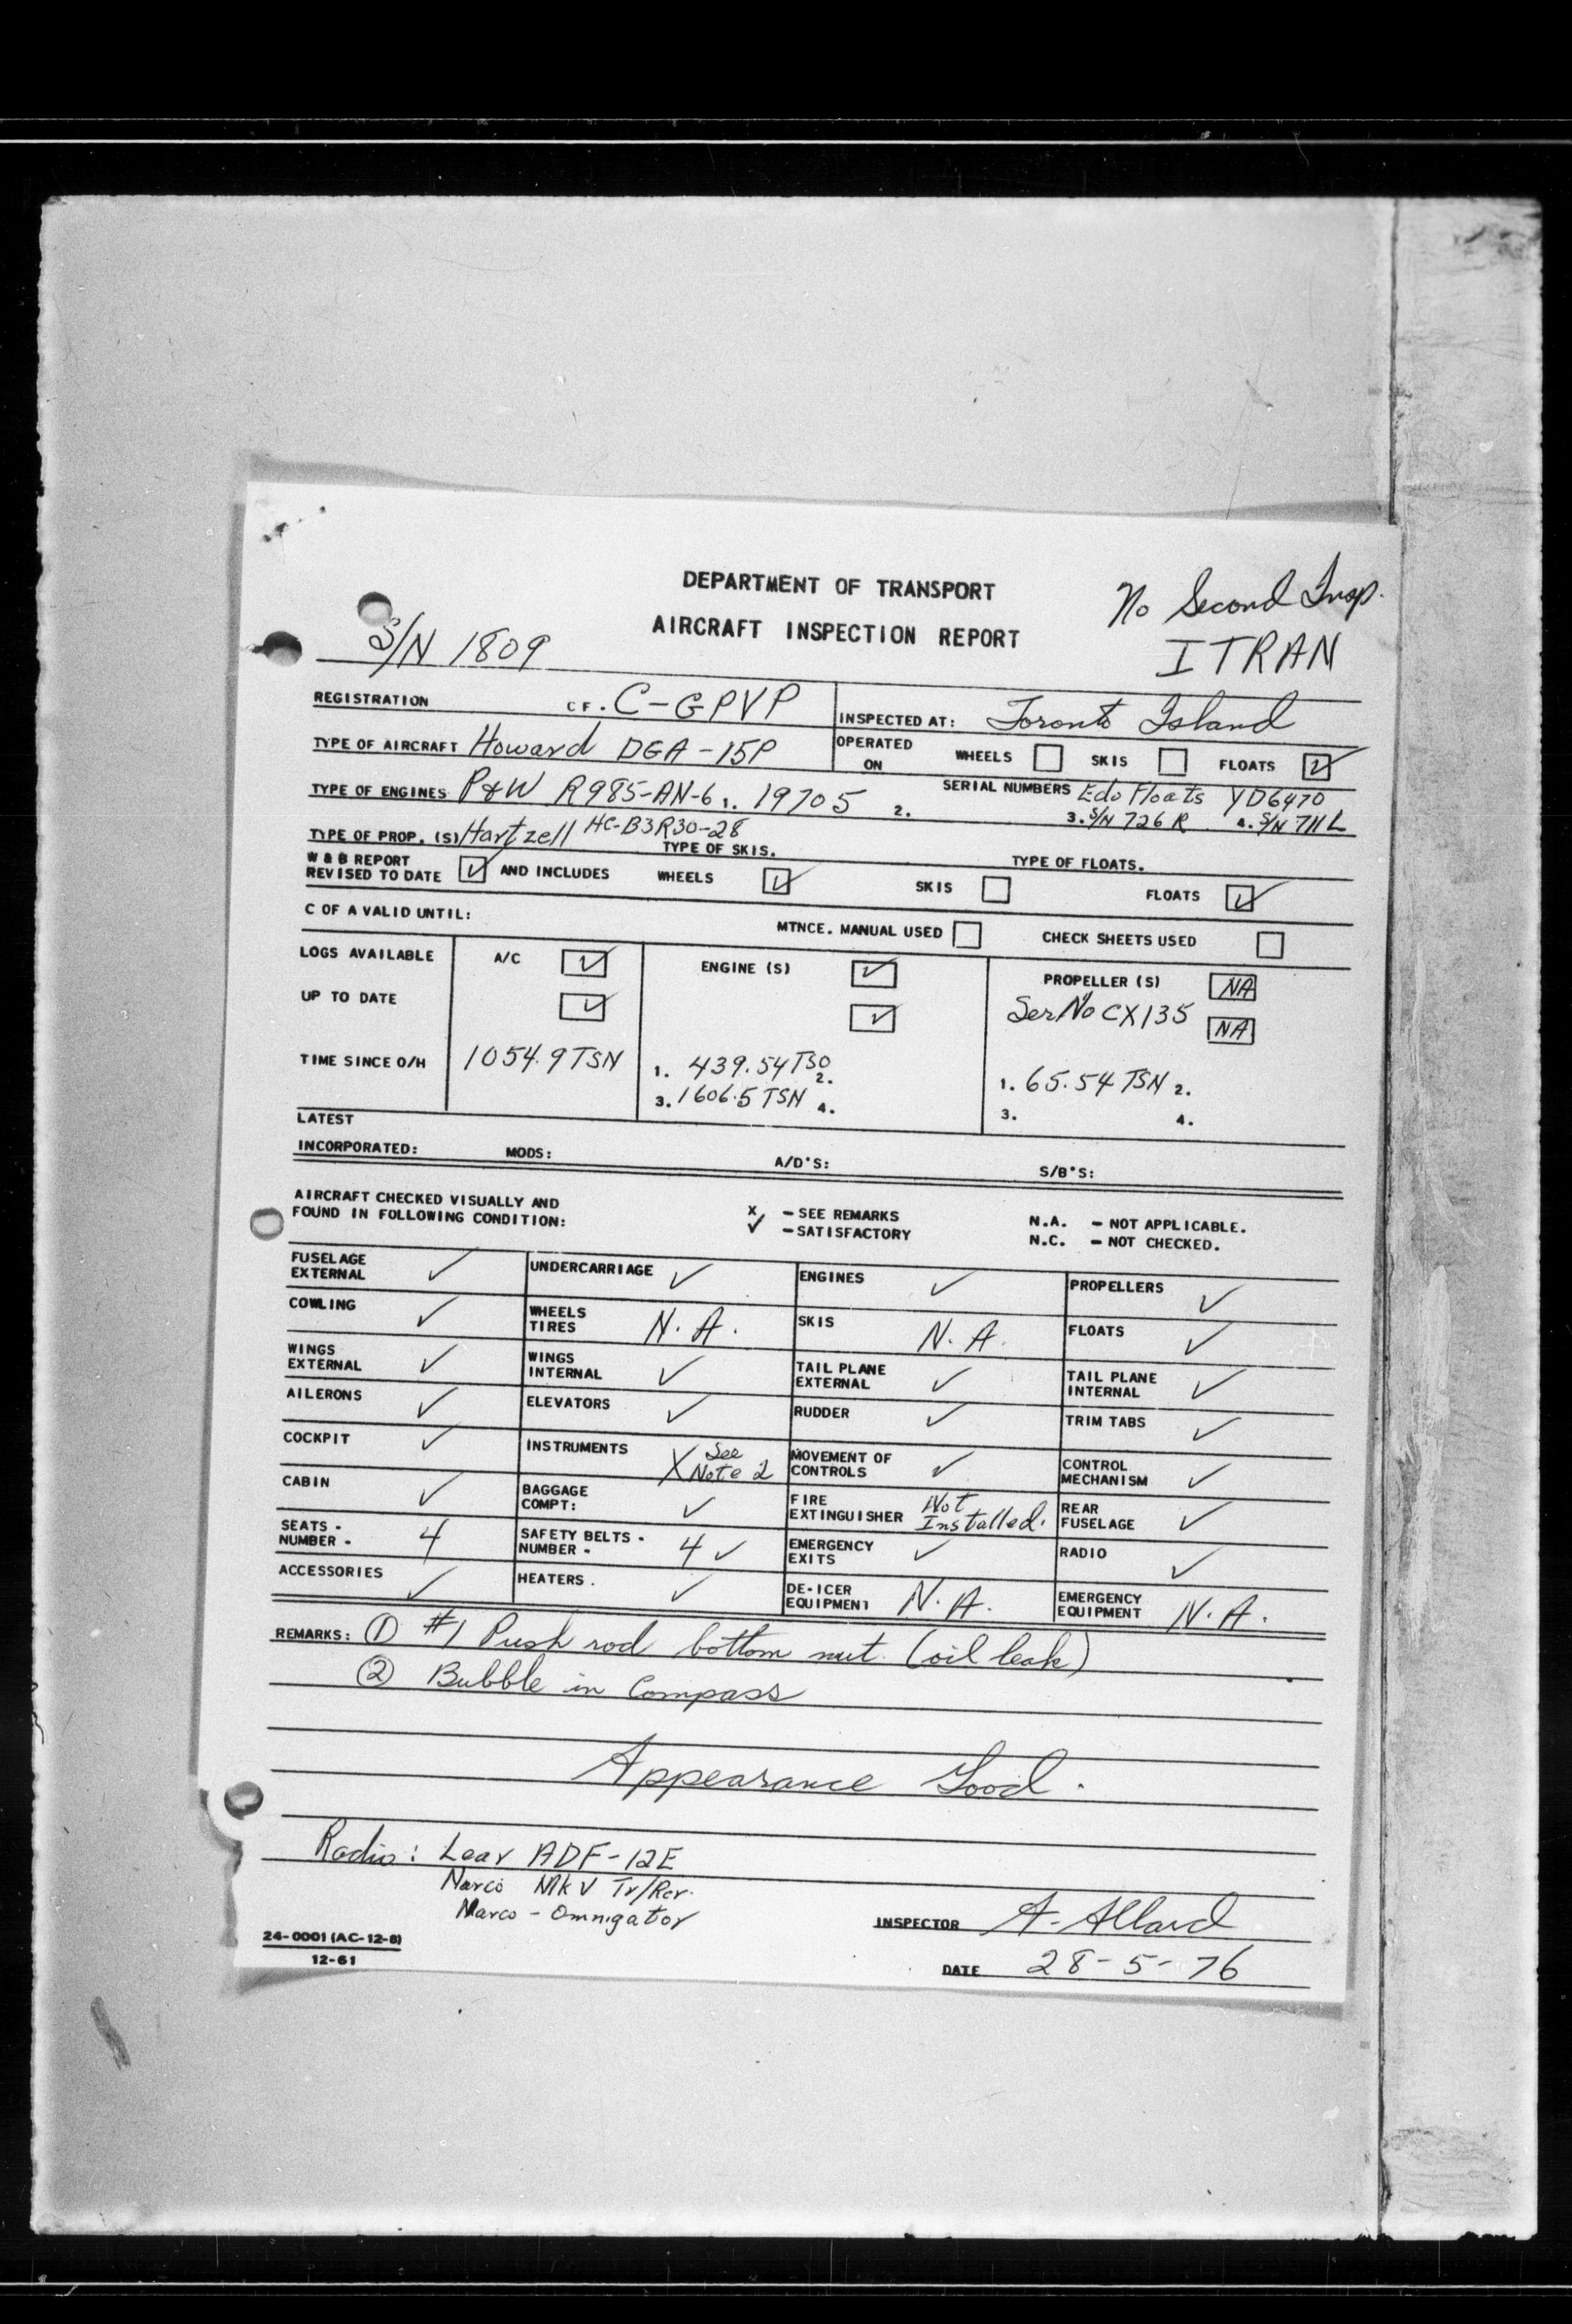 DEPARTMENT OF TRANSPORT
AIRCRAFT INSPECTION REPORT
No Second Insp.
ITRAN
S/N 1809
REGISTRATION CF. C-GPVP INSPECTED AT: Toronto Island
TYPE OF AIRCRAFT Howard DGA-15P OPERATED ON WHEELS SKIS FLOATS ✓
TYPE OF ENGINES P&W R985-AN-6 1. 19705 2. SERIAL NUMBERS Edo Floats YD6470
3. S/N 726 R 4. S/N 711 L
TYPE OF PROP. (S) Hartzell HC-B3R30-28 TYPE OF SKIS. TYPE OF FLOATS.
W & B REPORT REVISED TO DATE ✓ AND INCLUDES WHEELS ✓ SKIS FLOATS ✓
C OF A VALID UNTIL: MTNCE. MANUAL USED CHECK SHEETS USED
LOGS AVAILABLE A/C ✓ ENGINE (S) ✓ PROPELLER (S) NA
UP TO DATE ✓ ✓ Ser No CX135 NA
TIME SINCE O/H 1054.9 TSN 1. 439.54 TSO 2. 1. 65.54 TSN 2.
3. 1606.5 TSN 4. 3. 4.
LATEST
INCORPORATED: MODS: A/D'S: S/B'S:
AIRCRAFT CHECKED VISUALLY AND
FOUND IN FOLLOWING CONDITION:
X - SEE REMARKS N.A. - NOT APPLICABLE.
✓ - SATISFACTORY N.C. - NOT CHECKED.
FUSELAGE EXTERNAL ✓ UNDERCARRIAGE ✓ ENGINES ✓ PROPELLERS ✓
COWLING ✓ WHEELS TIRES N.A. SKIS N.A. FLOATS ✓
WINGS EXTERNAL ✓ WINGS INTERNAL ✓ TAIL PLANE EXTERNAL ✓ TAIL PLANE INTERNAL ✓
AILERONS ✓ ELEVATORS ✓ RUDDER ✓ TRIM TABS ✓
COCKPIT ✓ INSTRUMENTS X See Note 2 MOVEMENT OF CONTROLS ✓ CONTROL MECHANISM ✓
CABIN ✓ BAGGAGE COMPT: ✓ FIRE EXTINGUISHER Not Installed. REAR FUSELAGE ✓
SEATS - NUMBER - 4 SAFETY BELTS - NUMBER - 4 ✓ EMERGENCY EXITS ✓ RADIO ✓
ACCESSORIES ✓ HEATERS. ✓ DE-ICER EQUIPMENT N.A. EMERGENCY EQUIPMENT N.A.
REMARKS: ① #1 Push rod bottom nut. (oil leak)
② Bubble in Compass
Appearance Good.
Radio: Lear ADF-12E
Narco MK V Tr/Rcr.
Narco - Omnigator
INSPECTOR A. Allard
24-0001 (AC-12-8)
12-61
DATE 28-5-76